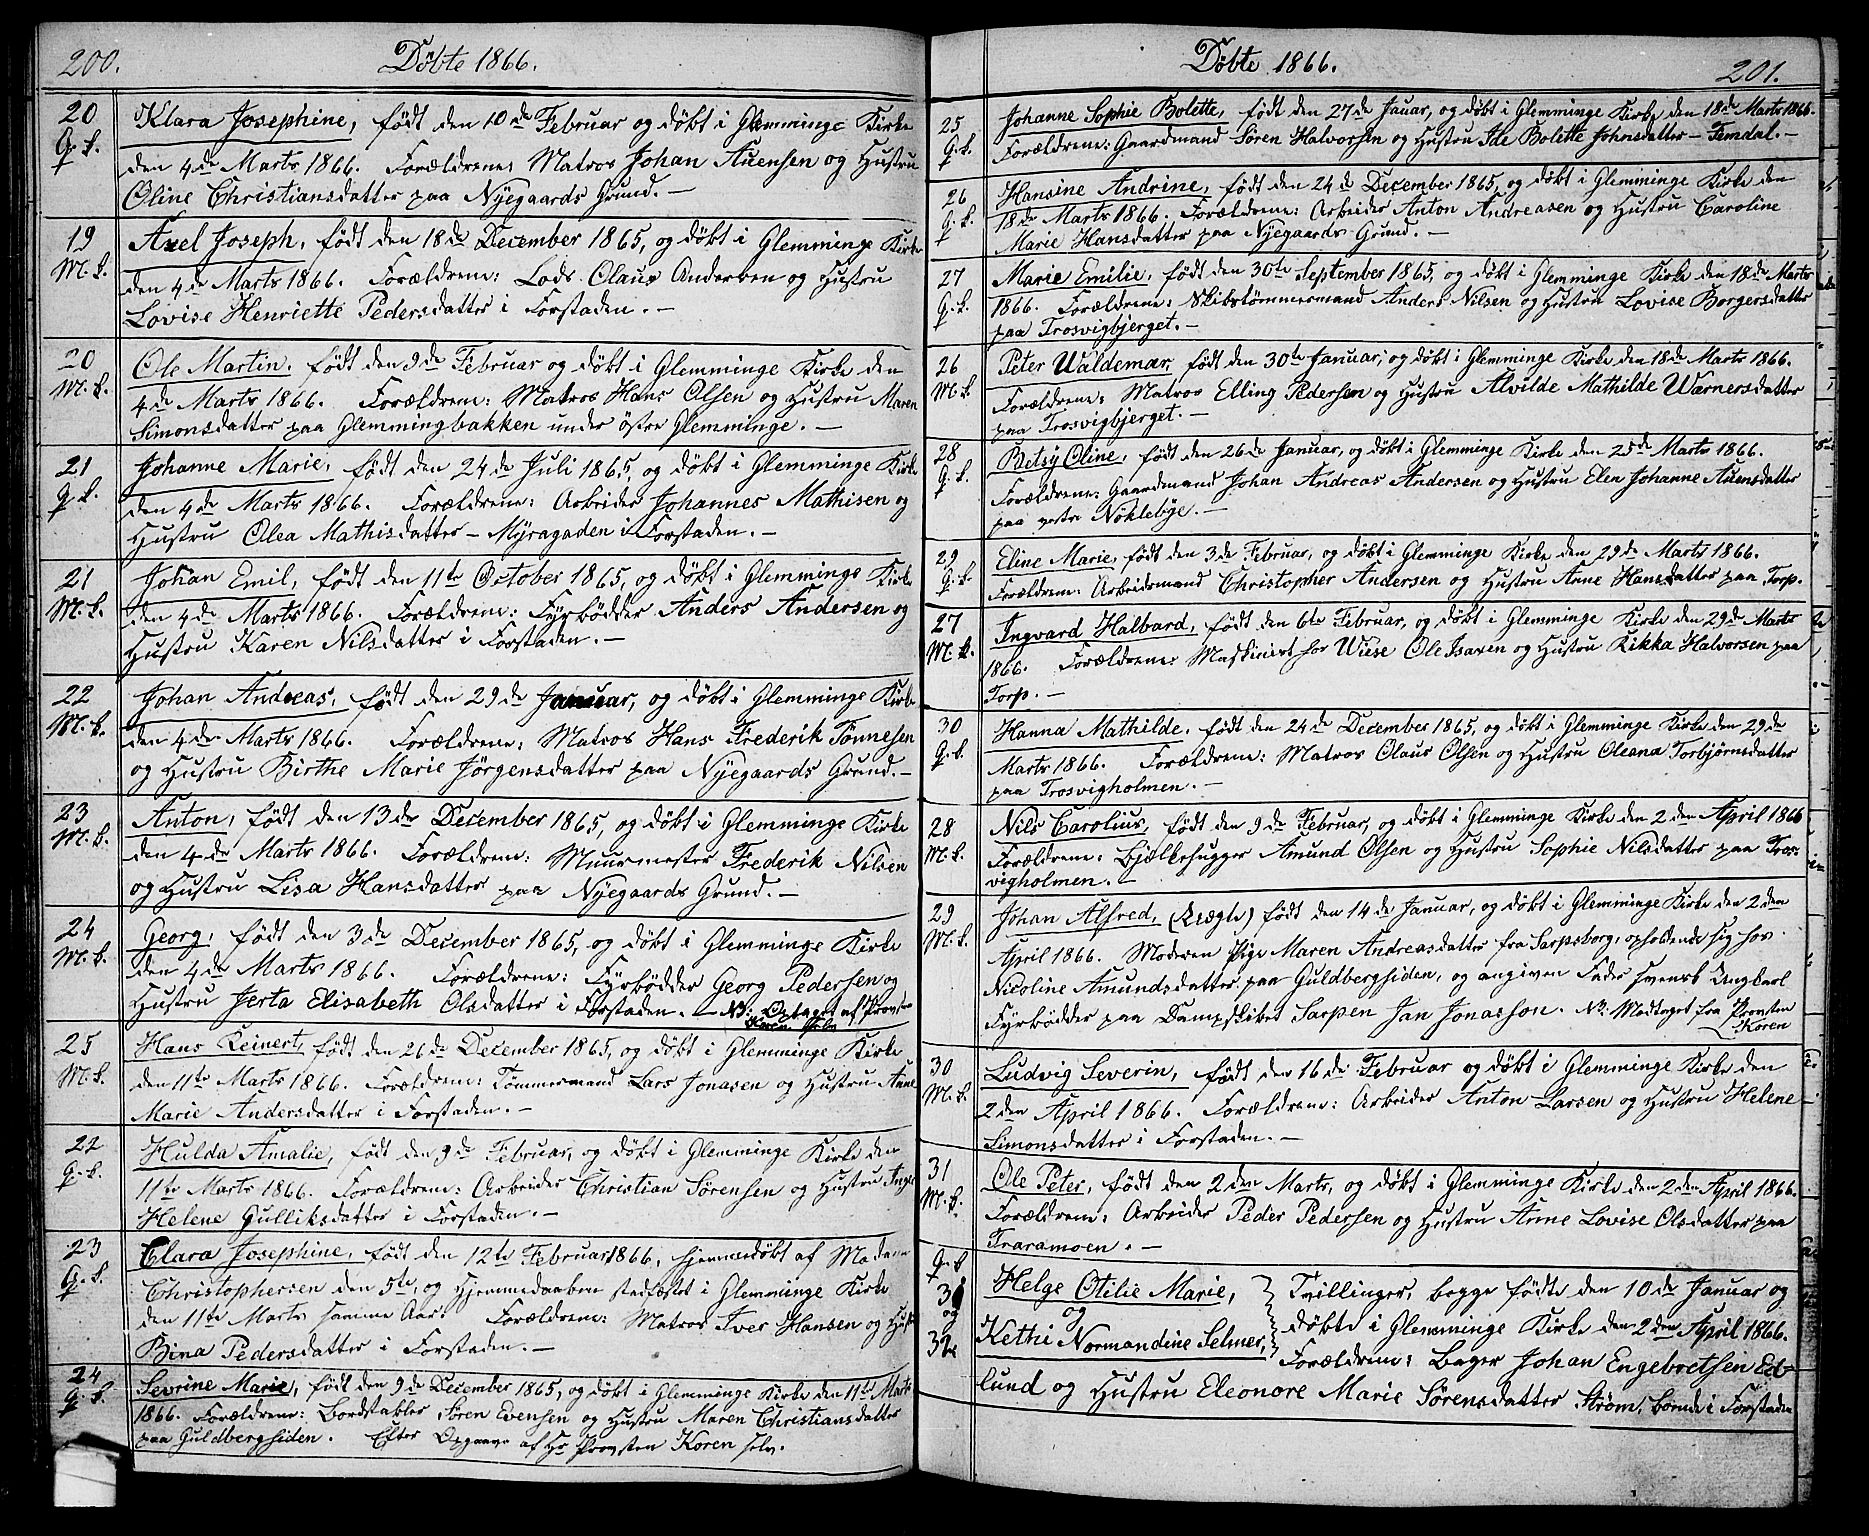 200.
Döbte 1866.
20
Q. k.
Klara Josephine, født den 10de Februar og døbt i Glemminge Kirke
den 4de Marts 1866. Forældrene: Matros Johan Auensen og Hustru
Oline Christiansdatter paa Nyegaards Grund. —
19
M. k.
Axel Joseph, født den 18de December 1865, og døbt i Glemminge Kirke
den 4de Marts 1866. Forældrene: Lods Claus Andersen og Hustru
Lovise Henriette Pedersdatter i Forstaden. —
20
M. k.
Ole Martin. født den 9de Februar og døbt i Glemminge Kirke den
4de Marts 1866. Forældrene: Matros Hans Olsen og Hustru Maren
Simonsdatter paa Glemmingbakken under östre Glemminge. —
21
Q. k.
Johanne Marie, født den 24de Juli 1865, og døbt i Glemminge Kirke
den 4de Marts 1866. Forældrene: Arbeider Johannes Mathisen og
Hustru Olea Mathisdatter — Myragaden i Forstaden. —
21
M. k.
Johan Emil, født den 11te October 1865, og døbt i Glemminge Kirke
den 4de Marts 1866. Forældrene: Fyrbödder Anders Andersen og
Hustru Karen Nilsdatter i Forstaden. —
22
M. k.
Johan Andreas, født den 29de Januar, og døbt i Glemminge Kirke
den 4de Marts 1866. Forældrene: Matros Hans Frederik Tönnesen
og Hustru Birthe Marie Jörgensdatter paa Nyegaards Grund. —
23
M. k.
Anton, født den 13de December 1865, og døbt i Glemminge Kirke
den 4de Marts 1866. Forældrene: Muurmester Frederik Nilsen
og Hustru Lisa Hansdatter paa Nyegaards Grund. —
24
M. k.
Georg, født den 3de December 1865, og døbt i Glemminge Kirke
den 4de Marts 1866. Forældrene: Fyrbödder Georg Pedersen og
Hustru Jerta Elisabeth Olsdatter i Forstaden. — NB: Optaget af Provsten
Koren selv
25
M. k.
Hans Reinert, født den 26de December 1865, og døbt i Glemminge Kirke
den 11te Marts 1866. Forældrene: Tömmermand Lars Jonasen og Hustru Anne
Marie Andersdatter i Forstaden. —
22
Q. k.
Hulda Amalie, født den 9de Februar, og døbt i Glemminge Kirke den
11te Marts 1866. Forældrene: Arbeider Christian Sörensen og Hustru Inger
Helene Gulliksdatter i Forstaden. —
23
Q. k.
Clara Josephine, født den 12te Februar 1866, hjemmedøbt af Madame
Christophersen den 5te, og Hjemmedaaben stadfæstet i Glemminge Kirke
den 11te Marts samme Aar. Forældrene: Matros Iver Hansen og Hustr
Bina Pedersdatter i Forstaden. —
24
Q. k.
Sevrine Marie, født den 9de December 1865, og døbt i Glemminge Kirke den 11te Marts
1866. Forældrene: Bordstabler Sören Evensen og Hustru Maren Christiansdatter
paa Guldbergsiden. Efter Opgave af Hr Provsten Koren selv.
Döbte 1866.
201.
25
Q. k.
Johanne Sophie Bolette, født den 27de Januar, og døbt i Glemminge Kirke den 18de Marts 1866.
Forældrene: Gaardmand Sören Halvorsen og Hustru Ide Bolette Johnsdatter — Temdal. —
26
Q. k.
Hansine Andrine, født den 24de December 1865, og døbt i Glemminge Kirke den
18de Marts 1866. Forældrene: Arbeider Anton Andreasen og Hustru Caroline
Marie Hansdatter paa Nyegaards Grund. —
27
Q. k.
Marie Emilie, født den 30te September 1865, og døbt i Glemminge Kirke den 18de Marts
1866. Forældrene: Skibstömmermand Anders Nilsen og Hustru Lovise Borgersdatter
paa Trosvigbjerget. —
26
M. k
Peter Waldemar, født den 30te Januar, og døbt i Glemminge Kirke den 18de Marts 1866.
Forældrene: Matros Elling Pedersen og Hustru Alvilde Mathilde Warnersdatter
paa Trosvigbjerget. —
28
Q. k.
Betsy Oline, født den 26de Januar, og døbt i Glemminge Kirke den 25de Marts 1866.
Forældrene: Gaardmand Johan Andreas Andersen og Hustru Elen Johanne Auensdatter
paa vestre Nöklebye. —
29
Q. k.
Eline Marie, født den 3de Februar, og døbt i Glemminge Kirke den 29de Marts 1866.
Forældrene: Arbeidsmand Christopher Andersen og Hustru Anne Hansdatter paa Torp.
27
M. k.
Ingvard Halbard, født den 6te Februar, og døbt i Glemminge Kirke den 29de Marts
1866. Forældrene: Maskinist hos Wiese Ole Isaxen og Hustru Rikka Halvorsen paa
Torp. —
30
Q. k.
Hanna Mathilde. født den 24de December 1865, og døbt i Glemminge Kirke den 29de
Marts 1866. Forældrene: Matros Claus Olsen og Hustru Oleana Torbjörnsdatter
paa Trosvigholmen. —
28
M. k.
Nils Carolius, født den 9de Februar, og døbt i Glemminge Kirke den 2den April 1866
Forældrene: Bjelkehugger Amund Olsen og Hustru Sophie Nilsdatter paa Tros-
vigholmen. —
29
M. k.
Johan Alfred, (Uægte) født den 14de Januar, og døbt i Glemminge Kirke den 2den
April 1866. Moderen Pige Maren Andreasdatter fra Sarpsborg, opholdende sig hos
Nicoline Amundsdatter paa Guldbergsiden, og angiven Fader svensk Ungkarl
Fyrbödder paa Dampskibet Sarpen Jan Jonasson. NB: Modtaget fra Provsten
Koren
30
M. k.
Ludvig Severin, født den 16de Februar og døbt i Glemminge Kirke den
2den April 1866. Forældrene: Arbeider Anton Larsen og Hustru Helene
Simonsdatter i Forstaden. —
31
M. k.
Ole Peter, født den 2den Marts, og døbt i Glemminge Kirke den 2den April 1866.
Forældrene: Arbeider Peder Pedersen og Hustru Anne Lovise Olsdatter paa
Traramoen. —
Q. k
31
og
32
Helge Otilie Marie,
og
Kethi Normandine Selmer,
Tvillinger, begge fødte den 10de Januar og
døbte i Glemminge Kirke den 2den April 1866.
Forældrene: Bager Johan Engebretsen Ed-
lund og Hustru Eleonore Marie Sörensdatter Ström, boende i Forstaden